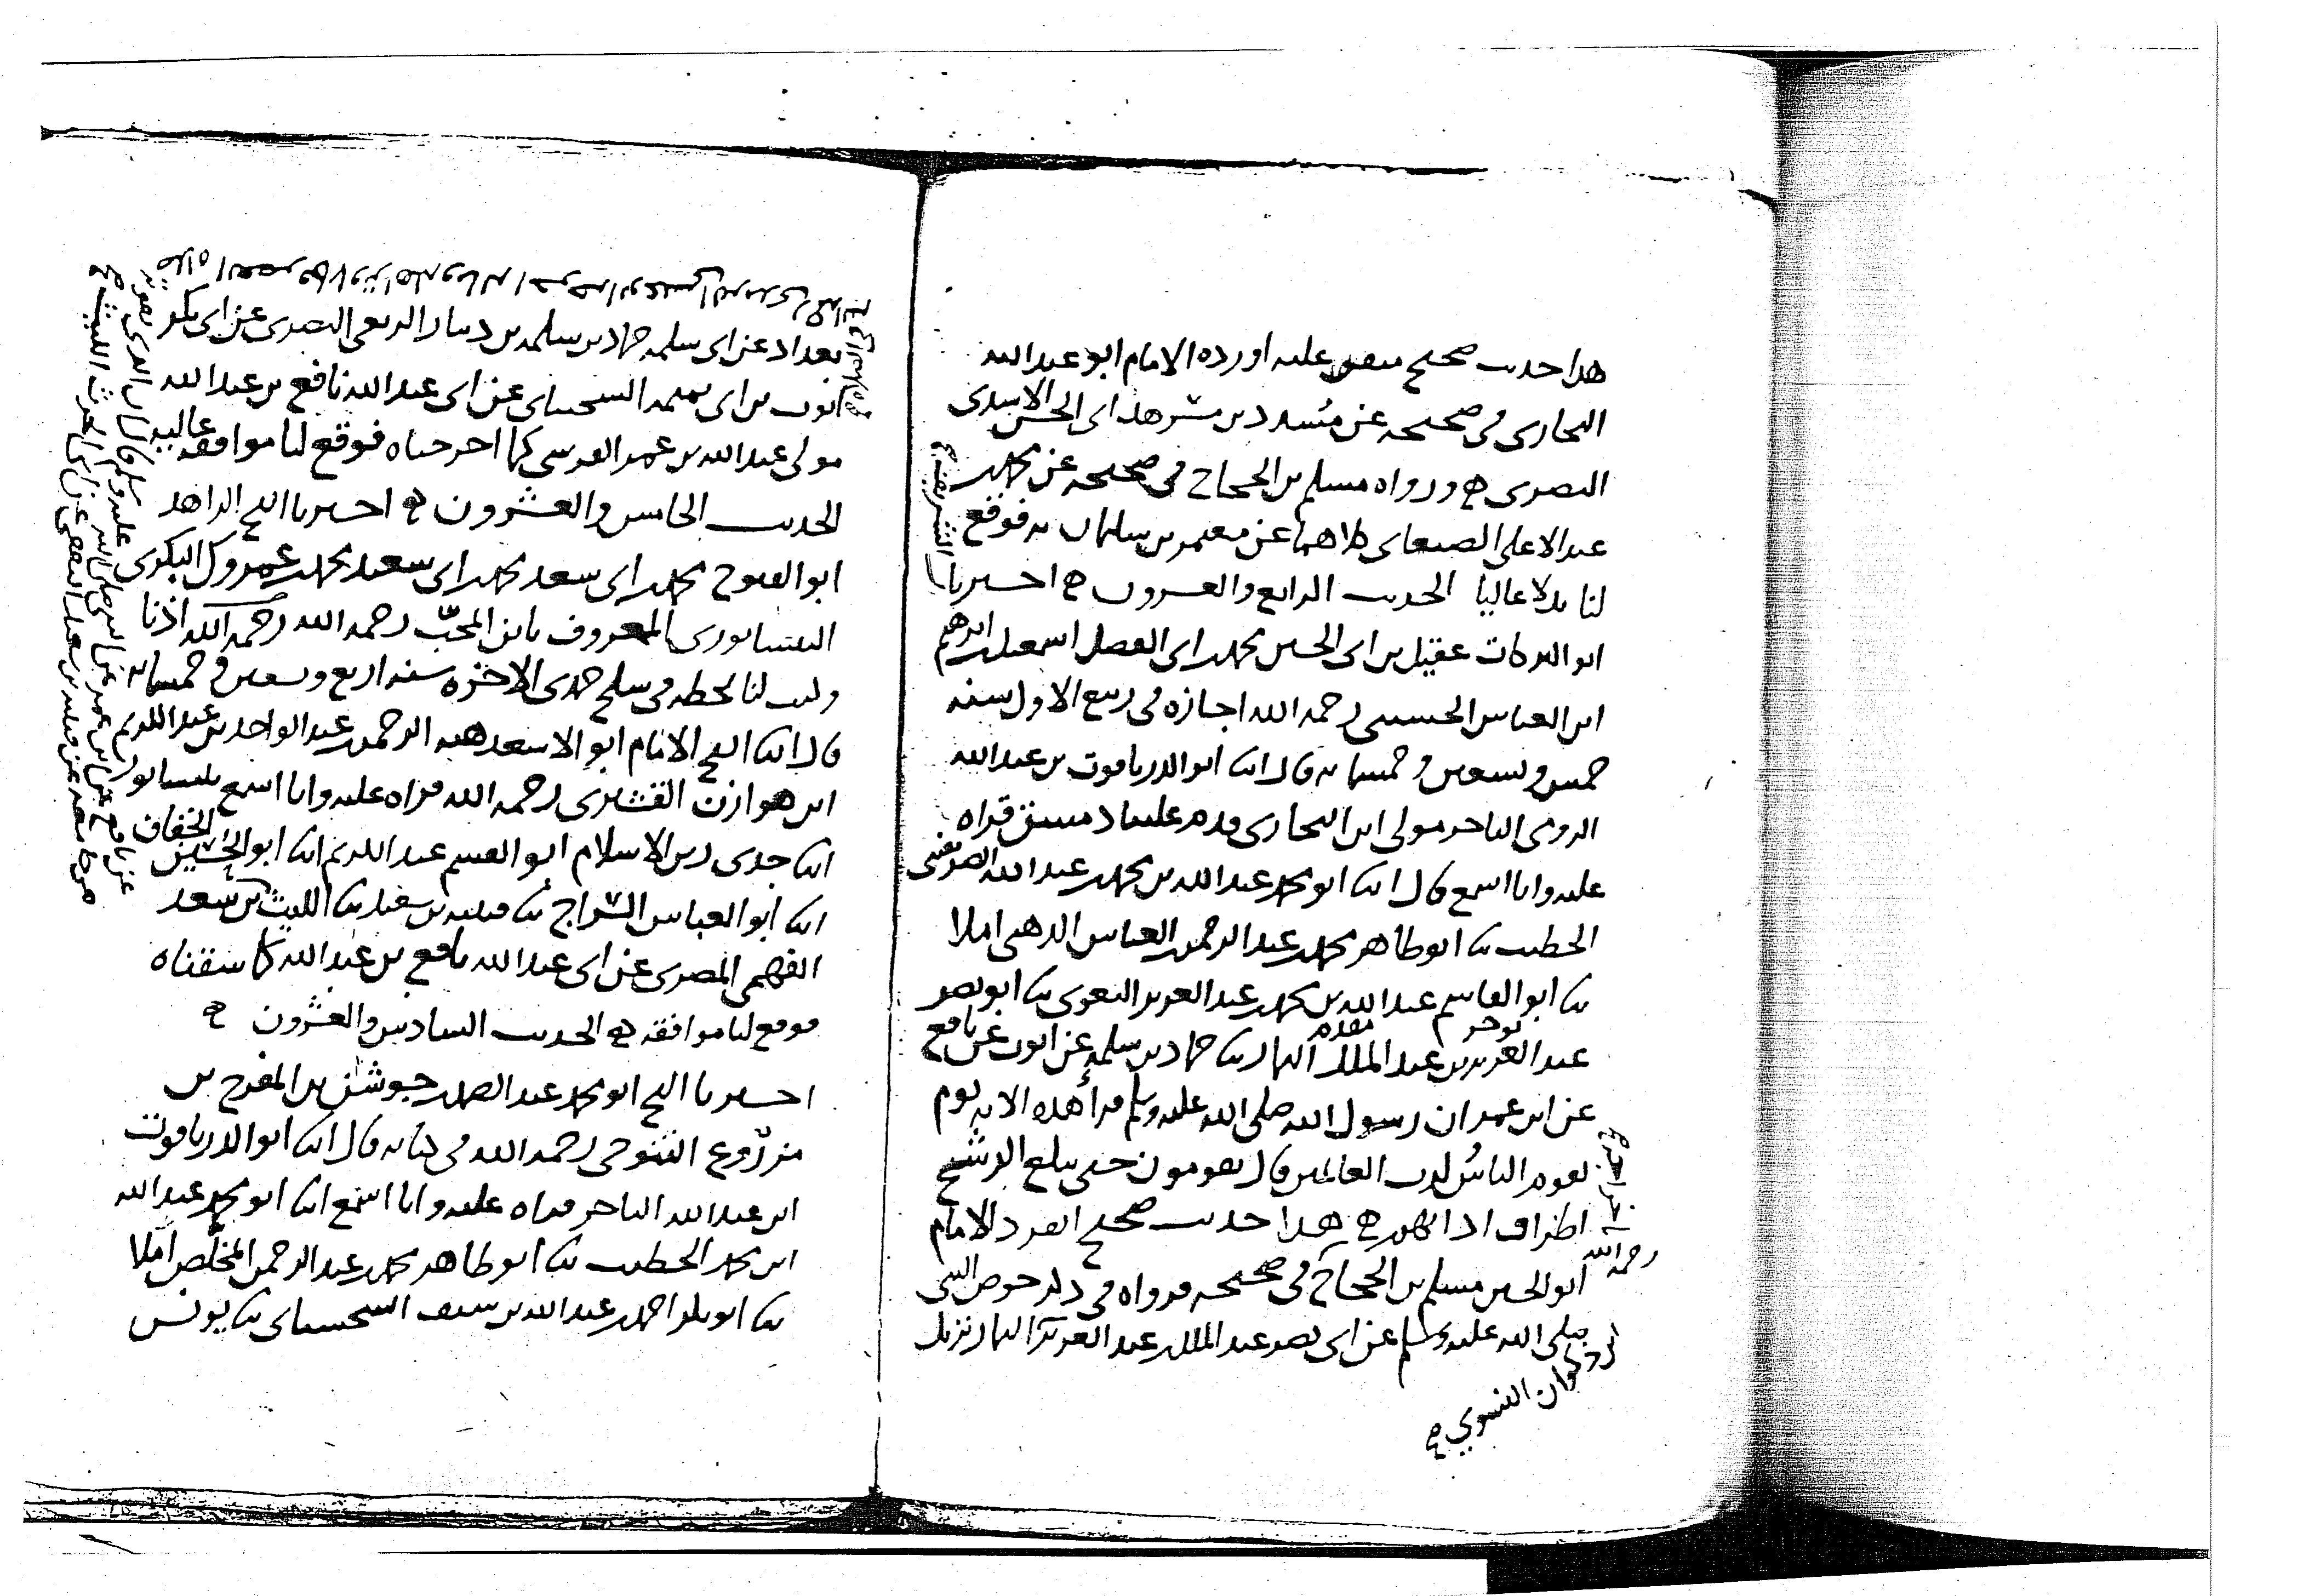 هذا حديث صحيح متفق عليه اورده الامام ابو عبد الله
البخاري في صحيحه عن مُسدد بن مسرهد ابي الحسن الاسدي
البصري ورواه مسلم بن الحجاج في صحيحه عن محمد بن
عبد الاعلى الصنعاني كلاهما عن معتمر بن سليمان به فوقع
لنا بدلا عاليا الحديث الرابع والعشرون اخبرنا الشريف
ابو البركات عقيل بن ابي الحسين محمد بن ابي الفضل اسمعيل بن ابرهيم
ابن العباس الحسيني رحمه الله اجازه في ربيع الاول سنه
خمس وتسعين وخمسمايه قال انبا ابو الدر ياقوت بن عبد الله
الرومي التاجر مولى ابن البخاري قدم علينا دمشق قراه
عليه وانا اسمع قال انبا ابو محمد عبد الله بن محمد بن عبد الله الصريفيني
الخطيب ثنا ابو طاهر محمد بن عبد الرحمن بن العباس الذهبي املا
ثنا ابو القاسم عبد الله بن محمد بن عبد العزيز البغوي ثنا ابو نصر
يوخر مقدم
عبد العزيز بن عبد الملك التمار ثنا حماد بن سلمه عن ايوب عن نافع
عن ابن عمر ان رسول الله صلى الله عليه وسلم قرأ هذه الايه يوم
يقوم الناسُ لرب العالمين قال يقومون حتى يبلغ الرشح
اطراف اذانهم هذا حديث صحيح انفرد الامام
رحمه الله
ابو الحسين مسلم بن الحجاج في صحيحه فرواه في ذكر حوض النبي
صلى الله عليه وسلم عن ابي نصر عبد الملك بن عبد العزيز التمار نزيل
ذكوان النسوي
بغداد عن ابي سلمه حماد بن سلمه بن دينار الربعي البصري عن ابي بكر
ايوب بن ابي تميمه السختياني عن ابي عبد الله نافع بن عبد الله
مولى عبد الله بن عمر القرشي كما اخرجناه فوقع لنا موافقه عاليه
الحديث الخامس والعشرون اخبرنا الشيخ الزاهد
ابو الفتوح محمد بن ابي سعد محمد بن ابي سعيد محمد بن عمروك البكري
النيسابوري المعروف بابن المحبّ رحمه الله رحمه الله اذنا
وكتب لنا بخطه في سلخ جمدى الاخره سنه اربع وتسعين وخمسمايه
قال انبا الشيخ الامام ابو الاسعد هبه الرحمن بن عبد الواحد بن عبد الكريم
ابن هوازن القشيري رحمه الله قراه عليه وانا اسمع بنيسابور
انبا جدي زين الاسلام ابو القسم عبد الكريم انبا ابو الحسين الخفاف
انبا ابو العباس السراج ثنا قتيبه بن سعيد ثنا الليث بن سعد
الفهمي المصري عن ابي عبد الله نافع بن عبد الله كما سقناه
فوقع لنا موافقه الحديث السادس والعشرون
اخبرنا الشيخ ابو محمد عبد الصمد بن جوشن بن المفرج بن
مزرّوع التنوخي رحمه الله في كتابه قال انبا ابو الدر ياقوت
ابن عبد الله التاجر قراه عليه وانا اسمع انبا ابو محمد عبد الله
ابن محمد الخطيب ثنا ابو طاهر محمد بن عبد الرحمن المخلّص املا
ثنا ابو بكر احمد بن عبد الله بن سيف السجستاني ثنا يونس